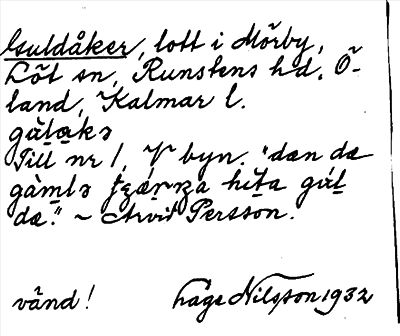 Guldåker, lott i Mörby,
Löt sn, Runstens hd. Ö-
land, Kalmar l.
gàḷạkə
Till nr 1, V byn. "dæn dæ
gàmlə hìta gúḷ
dæ." ~ Arvid Persson.
vänd! Håge Nilsson 1932